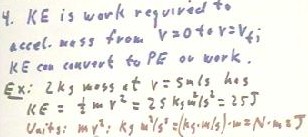 4. KE is work required to
accel. mass from v=0 to v=v_f;
KE can convert to PE or work.
Ex: 2 kg mass at v = 5 m/s has
KE = ½ m v² = 25 kg m²/s² = 25 J
Units: mv²: kg m²/s² = (kg·m/s²)·m = N·m = J